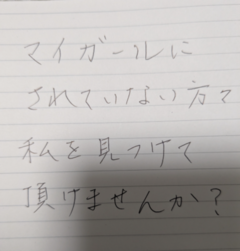 マイガールに
されていない方で
私を見つけて
頂けませんか?